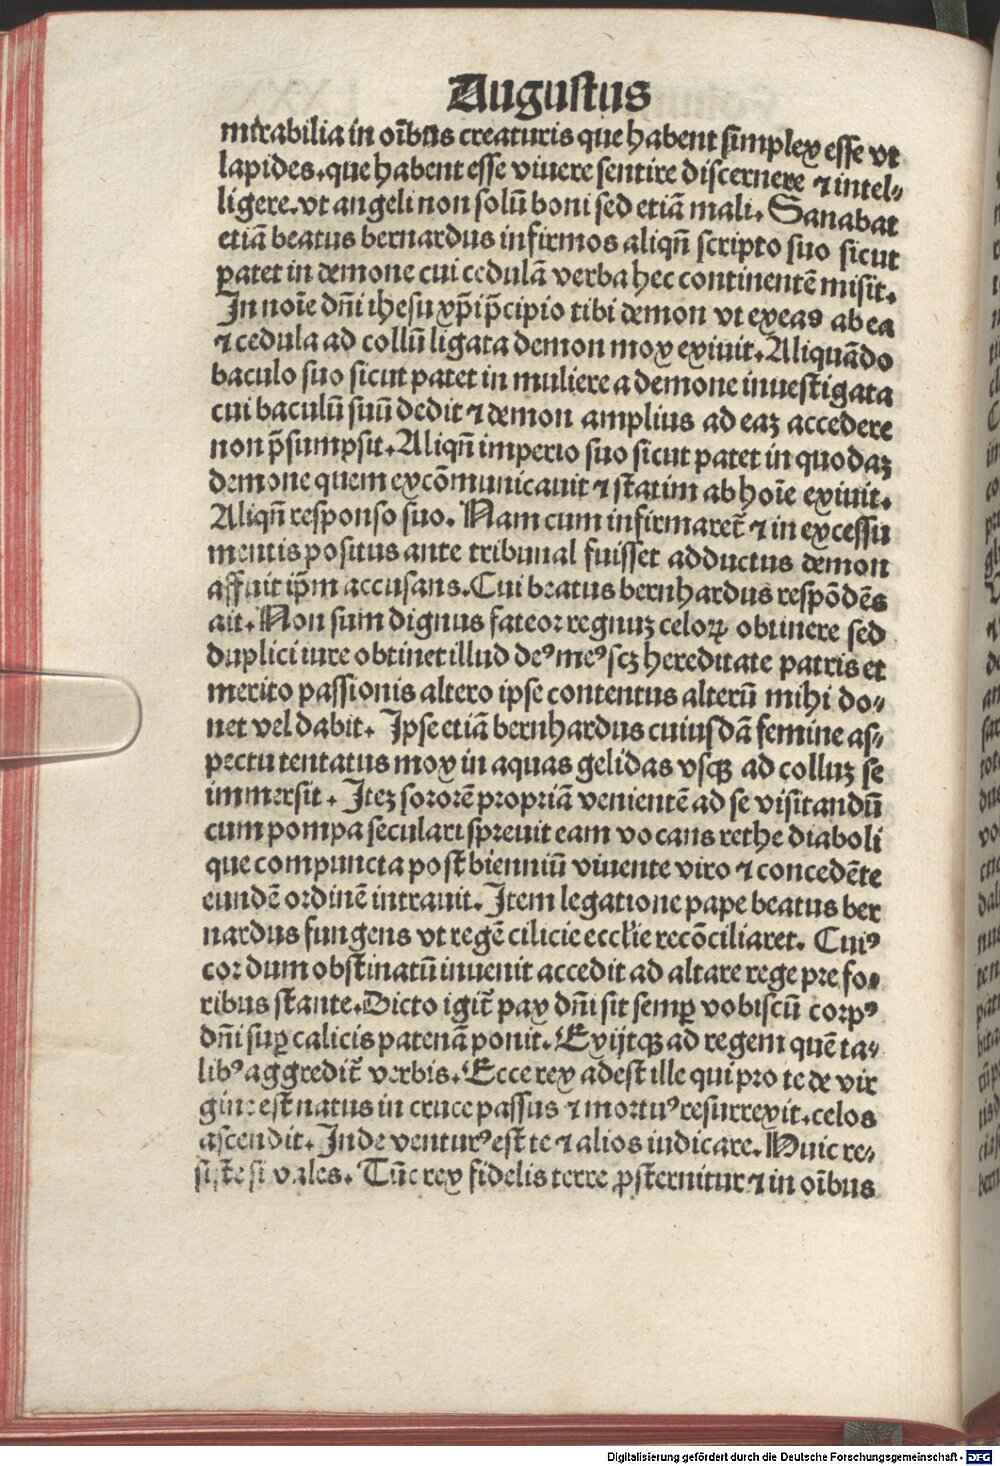 Augustus
mirabilia in oībus creaturis que habent simplex esse vt
lapides.que habent esse viuere sentire discernere ⁊ intel⸗
ligere.vt angeli non solū boni sed etiā mali. Sanabat
etiā beatus bernardus infirmos aliqñ scripto suo sicut
patet in demone cui cedulā verba hec continentē misit.
In noīe dñi ihesu xp̄i p̄cipio tibi demon vt exeas ab ea
⁊ cedula ad collū ligata demon mox exiuit. Aliquādo
baculo suo sicut patet in muliere a demone inuestigata
cui baculū suū dedit ⁊ demon amplius ad eaꝫ accedere
non p̄sumpsit. Aliqñ imperio suo sicut patet in quodaꝫ
demone quem excōmunicauit ⁊ statim ab hoīe exiuit.
Aliqñ responso suo. Nam cum infirmaret̄ ⁊ in excessu
mentis positus ante tribunal fuisset adductus demon
affuit ip̄m accusans. Cui beatus bernhardus respōdēs
ait. Non sum dignus fateor regnuꝫ celoꝝ obtinere sed
duplici iure obtinet illud deꝰ meꝰ scꝫ hereditate patris et
merito passionis altero ipse contentus alterū mihi do⸗
net vel dabit. Ipse etiā bernhardus cuiusdā femine as⸗
pectu tentatus mox in aquas gelidas vsqꝫ ad colluꝫ se
immersit. Iteꝫ sororē propriā venientē ad se visitandū
cum pompa seculari spreuit eam vocans rethe diaboli
que compuncta post bienniū viuente viro ⁊ concedēte
eundē ordinē intrauit. Item legatione pape beatus ber
nardus fungens vt regē cilicie eccl̄ie recōciliaret. Cuiꝰ
cor dum obstinatū inuenit accedit ad altare rege pre fo⸗
ribus stante. Dicto igit̄ pax dñi sit semꝑ vobiscū corpꝰ
dñi suꝑ calicis patenā ponit. Exijtqꝫ ad regem quē ta⸗
libꝰ aggredit̄ verbis. Ecce rex adest ille qui pro te de vir
gine est natus in cruce passus ⁊ mortuꝰ resurrexit.celos
ascendit. Inde venturꝰ est te ⁊ alios iudicare. Huic re⸗
siste si vales. Tūc rex fidelis terre ꝓsternitur ⁊ in oībus
Digitalisierung gefördert durch die Deutsche Forschungsgemeinschaft - DFG